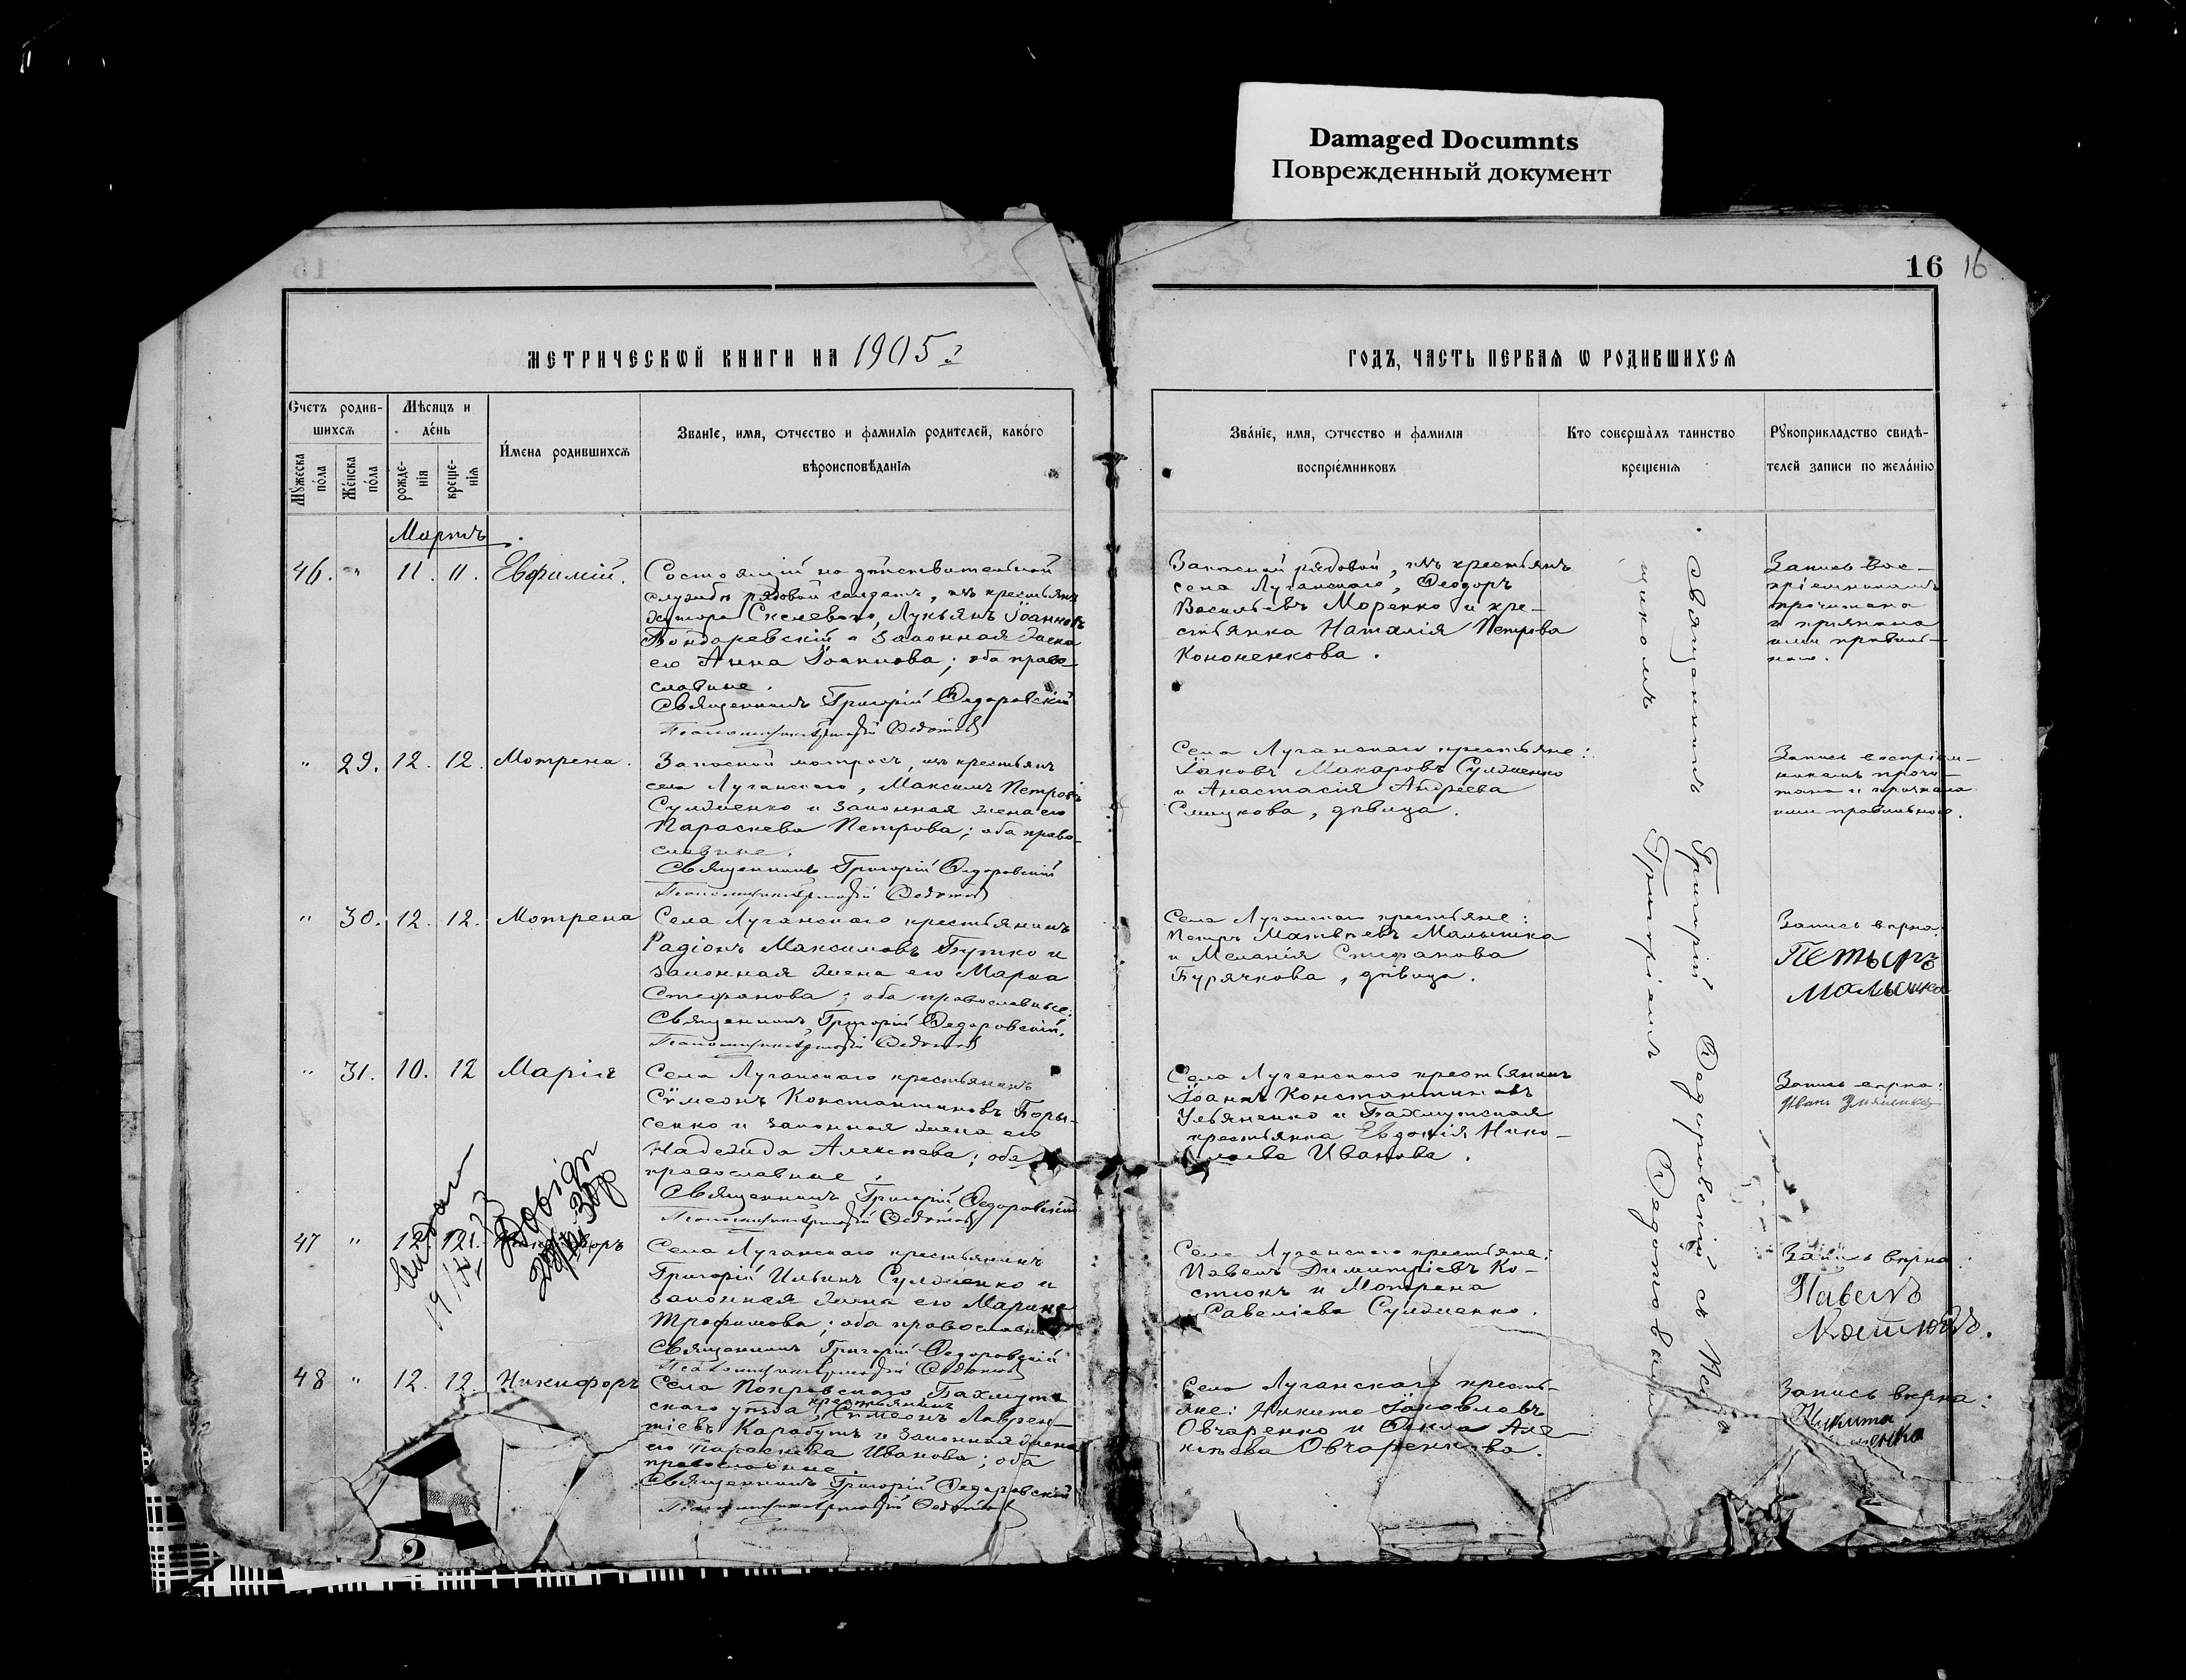 Damaged Documnts
Поврежденный документ
16 16
МЕТРИЧЕСКОЙ КНИГИ НА 1905 г
ГОДЪ, ЧАСТЬ ПЕРВАЯ Ѡ РОДИВШИХСЯ
Счетъ родив-
шихся
Мѣсяцъ и
де́нь
И́мена родившихся
Званіе, имя, отчество и фамилія родителей, како́го
вѣроисповѣданія
Мꙋжеска
по́ла
Же́нска
по́ла
рожде-
нія
креще-
нія
Зва́ніе, имя, отчество и фамилія
воспріе́мниковъ
Кто соверша́лъ таинство
крещенія
Рꙋкоприкладство свидѣ-
телей записи по жела́нію
Мартъ
46. " 11. 11. Евфимій.
Состоящій на дѣйствительной
службѣ рядовой солдатъ, изъ крестьянъ
хутора Скелеваго, Лукьянъ Іоанновъ
Бондаревскій и законная жена
его Анна Іоаннова; оба право-
славные.
Священникъ Григорій Ѳедоровскій
Псаломщикъ Григорій Ѳедотовъ
Запасной рядовой, изъ крестьянъ
села Луганскаго, Ѳеодоръ
Васильевъ Моренко и кре-
стьянка Наталія Петрова
Кононенкова.
Запись вос-
пріемникамъ
прочитана
и признана
ими правиль-
ною.
" 29. 12. 12. Мотрена.
Запасной матросъ, изъ крестьянъ
села Луганскаго, Максимъ Петровъ
Сулженко и законная жена его
Параскева Петрова; оба право-
славные.
Священникъ Григорій Ѳедоровскій
Псаломщикъ Григорій Ѳедотовъ
Села Луганскаго крестьяне:
Іаковъ Макаровъ Сулженко
и Анастасія Андреева
дѣвица.
Запись воспріем-
никамъ прочи-
тана и признана
ими правильною.
" 30. 12. 12. Мотрена
Села Луганскаго крестьянинъ
Радіонъ Максимовъ Бутко и
законная жена его Марѳа
Стефанова; оба православные.
Священникъ Григорій Ѳедоровскій.
Псаломщикъ Григорій Ѳедотовъ
Села Луганскаго крестьяне:
Петръ Матвѣевъ Малышка
и Меланія Стефанова
Бурячкова, дѣвица.
Запись вѣрна:
Петыръ
Малышка
" 31. 10. 12 Марія
Села Луганскаго крестьянинъ
Сѵмеонъ Константиновъ Боры-
сенко и законная жена его
Надежда Алексѣева; оба
православные.
Священникъ Григорій Ѳедоровскій
Псаломщикъ Григорій Ѳедотовъ
Села Луганскаго крестьянинъ
Іоаннъ Константиновъ
Ульяненко и Бахмутская
крестьянка Евдокія Нико-
лаева Иванова.
Запись вѣрна:
Иванъ Ульяненко
47 " 12 12.
Села Луганскаго крестьянинъ
Григорій Ильинъ Сулженко и
законная жена его Марина
Трофимова; оба православные
Священникъ Григорій Ѳедоровскій
Псаломщикъ Григорій Ѳедотовъ
Села Луганскаго крестьяне:
Павелъ Димитріевъ Ко-
стюкъ и Мотрена
Савеліева Сулженко.
Запись вѣрна:
Павелъ
Костюкъ.
48 " 12. 12. Никифоръ
Села Покровскаго Бахмут-
скаго уѣзда, крестьянинъ Сѵмеонъ Лаврен-
тіевъ Карабутъ и законная жена
его Параскева Иванова; оба
православные.
Священникъ Григорій Ѳедоровскій
Псаломщикъ Григорій Ѳедотовъ
Села Луганскаго кресть-
яне: Никита Іаковлевъ
Овчаренко и Ѳекла Але-
ксѣева Овчаренкова.
Запись вѣрна:
Никита
Священникъ Григорій Ѳедоровскій съ Псало-
мщикомъ Григоріемъ Ѳедотовымъ